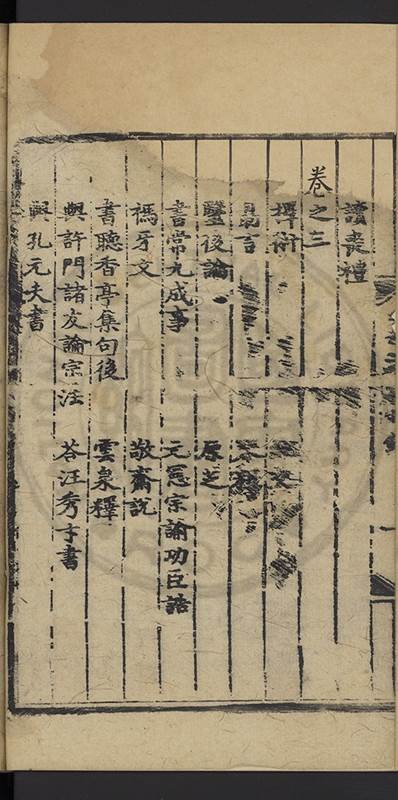 讀喪禮
卷之三
擇術
言
後論 原芝
書常九成事 元憲宗諭功臣誥
禡牙文 敬齋說
書聽香亭集句後 雲泉釋
與許門諸友論宗注 荅汪秀才書
與孔元夫書